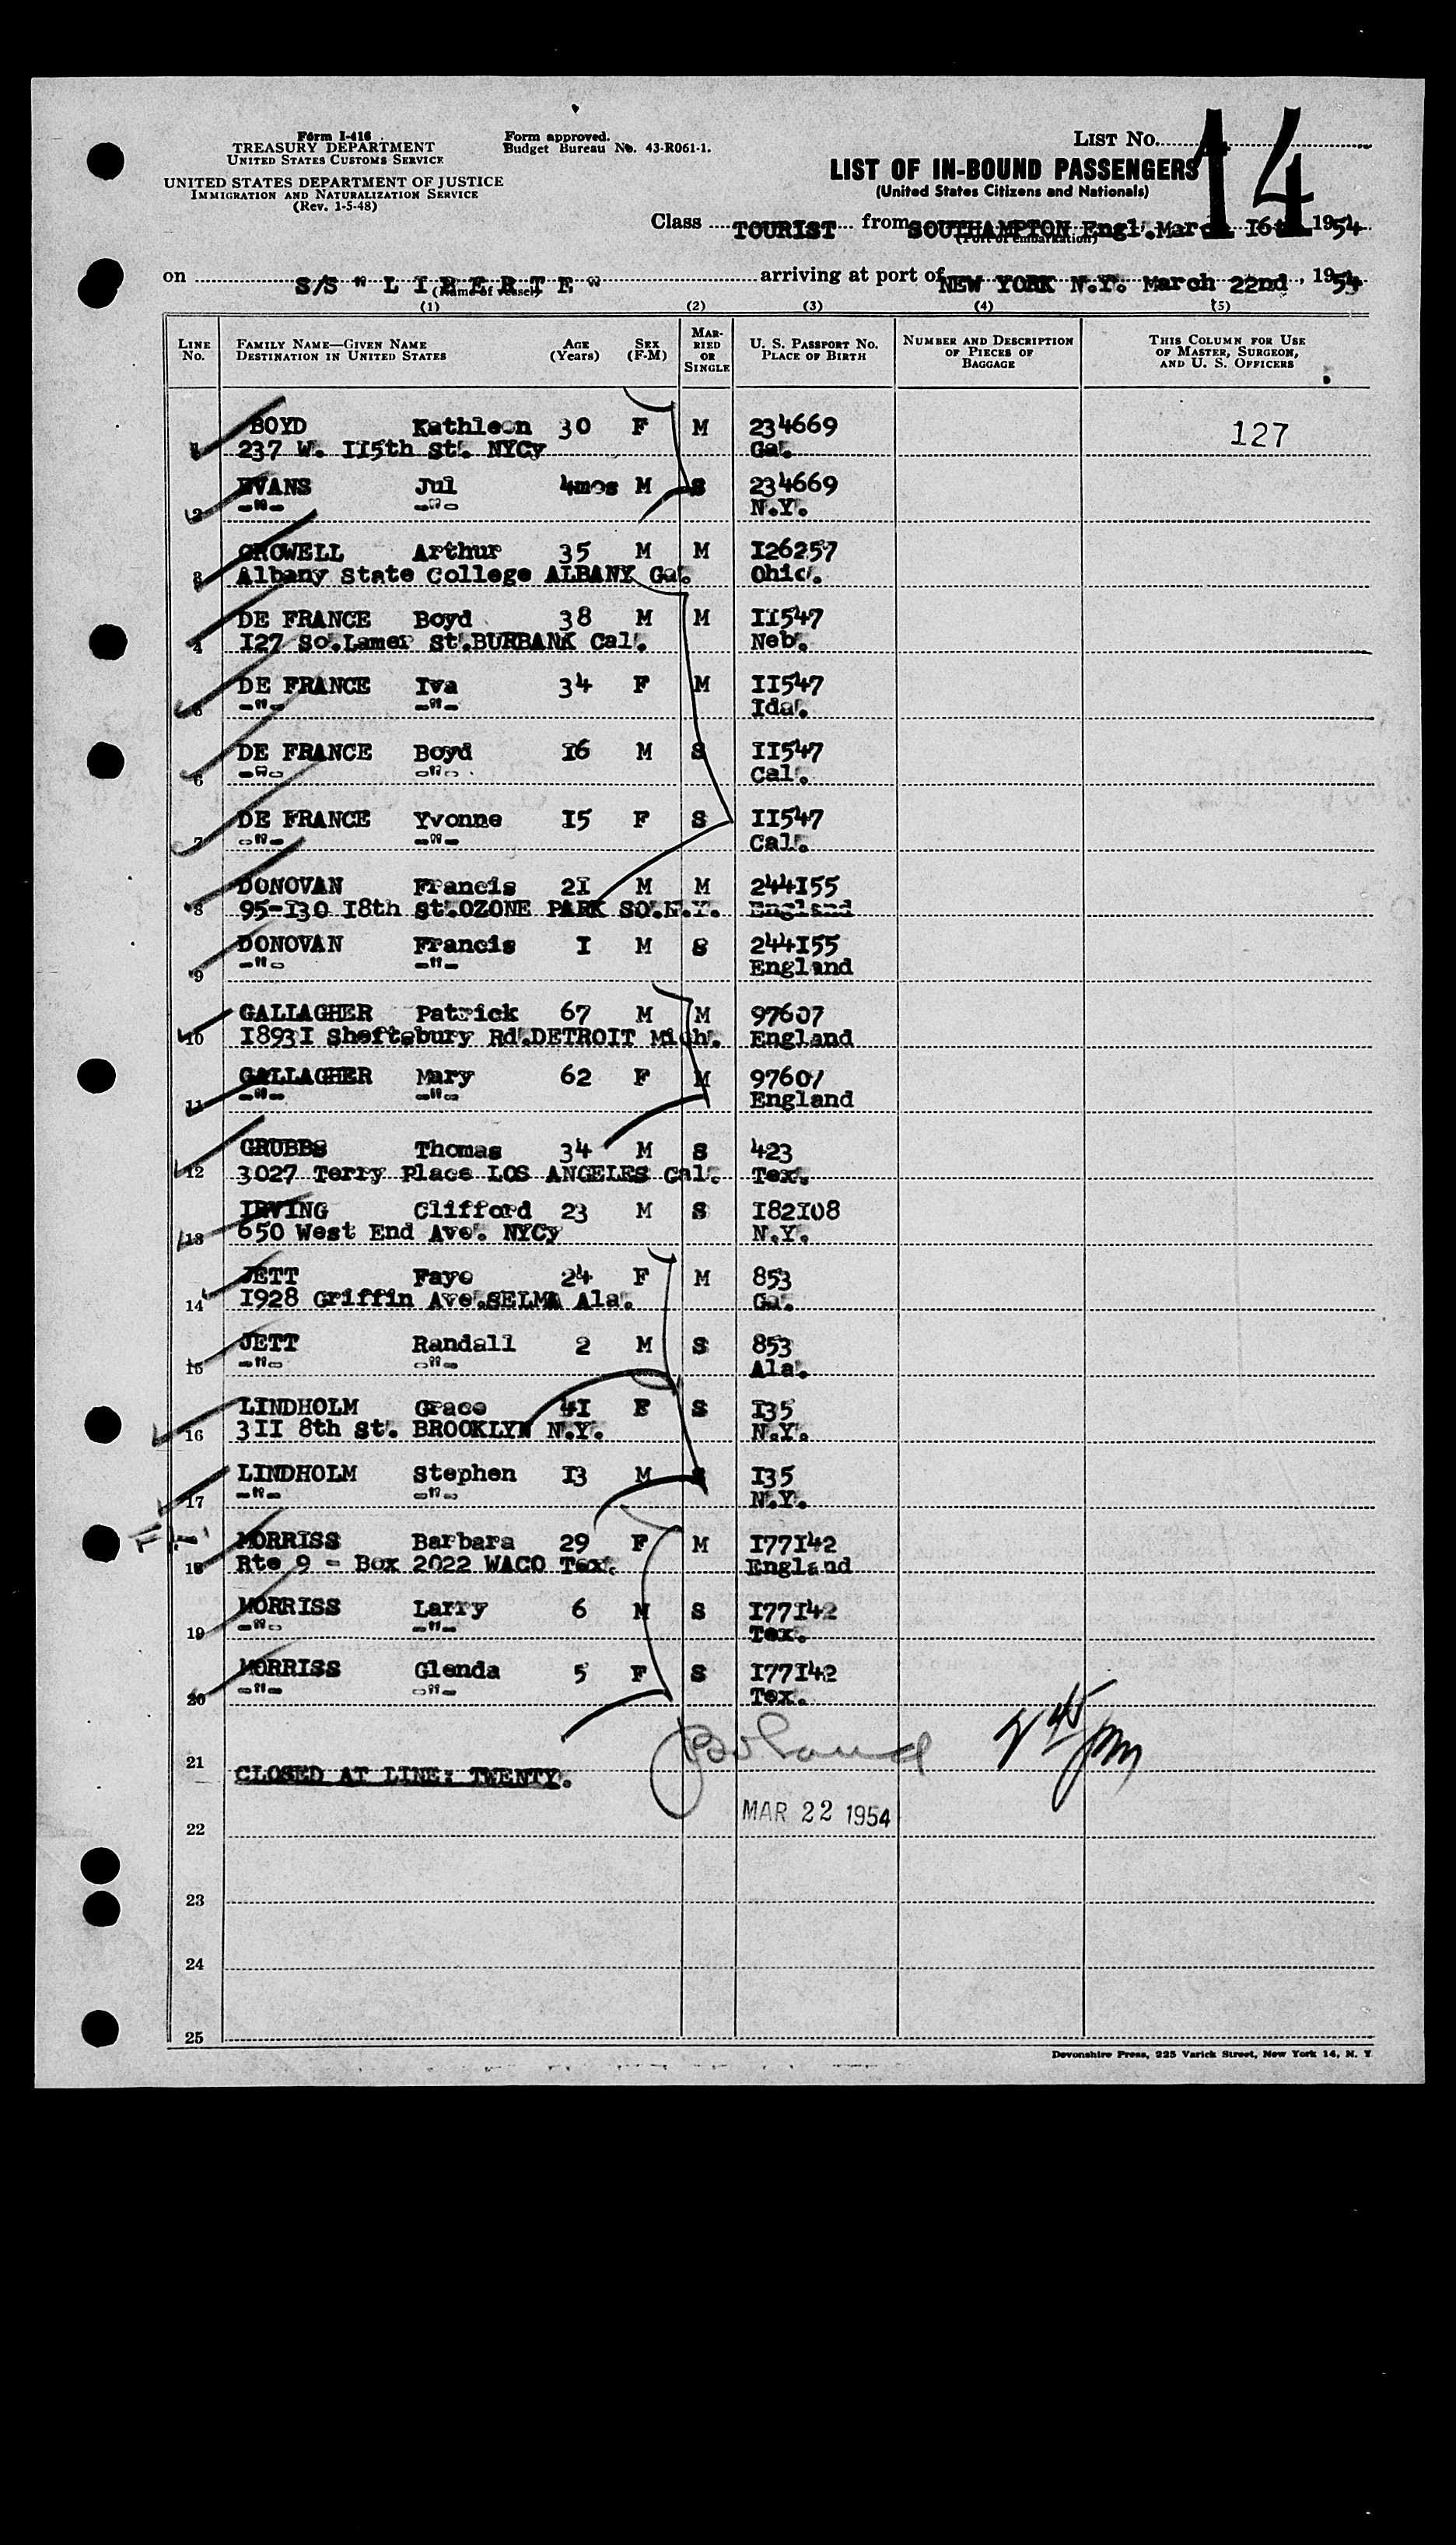 Form I-416
TREASURY DEPARTMENT
UNITED STATES CUSTOMS SERVICE
UNITED STATES DEPARTMENT OF JUSTICE
IMMIGRATION AND NATURALIZATION SERVICE
(Rev. 1-5-48)
Form approved.
Budget Bureau No. 43-R061-1.
LIST No. 14
LIST OF IN-BOUND PASSENGERS
(United States Citizens and Nationals)
Class TOURIST from SOUTHAMPTON Engl. March 16th 1954
(Port of embarkation)
on S/S "L I B E R T E" arriving at port of NEW YORK N.Y. March 22nd, 1954
(Name of vessel)
(1) (2) (3) (4) (5)
LINE No. FAMILY NAME—GIVEN NAME DESTINATION IN UNITED STATES AGE (Years) SEX (F-M) MARRIED OR SINGLE U. S. PASSPORT No. PLACE OF BIRTH NUMBER AND DESCRIPTION OF PIECES OF BAGGAGE THIS COLUMN FOR USE OF MASTER, SURGEON, AND U. S. OFFICERS
1 BOYD Kathleen 30 F M 234669 127
237 W. 115th St. NYCy Ga.
2 EVANS Jul 4mos M S 234669
-"- -"- N.Y.
3 CROWELL Arthur 35 M M 126257
Albany State College ALBANY Ga. Ohio.
4 DE FRANCE Boyd 38 M M 11547
127 So.Lamer St.BURBANK Cal. Neb.
5 DE FRANCE Iva 34 F M 11547
-"- -"- Ida.
6 DE FRANCE Boyd 16 M S 11547
-"- -"- Cal.
7 DE FRANCE Yvonne 15 F S 11547
-"- -"- Cal.
8 DONOVAN Francis 21 M M 244155
95-130 18th St.OZONE PARK SO.N.Y. England
9 DONOVAN Francis 1 M S 244155
-"- -"- England
10 GALLAGHER Patrick 67 M M 97607
18931 Sheftsbury Rd.DETROIT Mich. England
11 GALLAGHER Mary 62 F M 97607
-"- -"- England
12 GRUBBS Thomas 34 M S 423
3027 Terry Place LOS ANGELES Cal. Tex.
13 IRVING Clifford 23 M S 182108
650 West End Ave. NYCy N.Y.
14 JETT Faye 24 F M 853
1928 Griffin Ave.SELMA Ala. Ga.
15 JETT Randall 2 M S 853
-"- -"- Ala.
16 LINDHOLM Grace 41 F S 135
311 8th St. BROOKLYN N.Y. N.Y.
17 LINDHOLM Stephen 13 M S 135
-"- -"- N.Y.
18 MORRISS Barbara 29 F M 177142
Rte 9 - Box 2022 WACO Tex. England
19 MORRISS Larry 6 M S 177142
-"- -"- Tex.
20 MORRISS Glenda 5 F S 177142
-"- -"- Tex.
21 CLOSED AT LINE: TWENTY.
MAR 22 1954
22
23
24
25
Devonshire Press, 225 Varick Street, New York 14, N. Y.